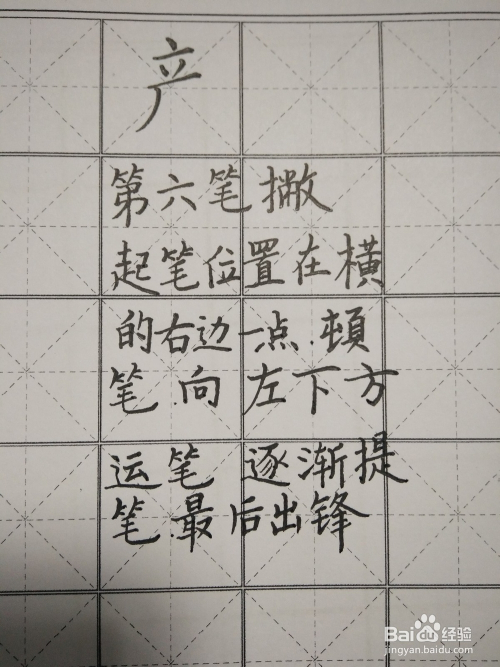 产
第六笔撇
起笔位置在横
的右边一点.頓
笔.向左下方
运笔 逐渐提
笔.最后出锋
Baidu 经验
jingyan.baidu.com